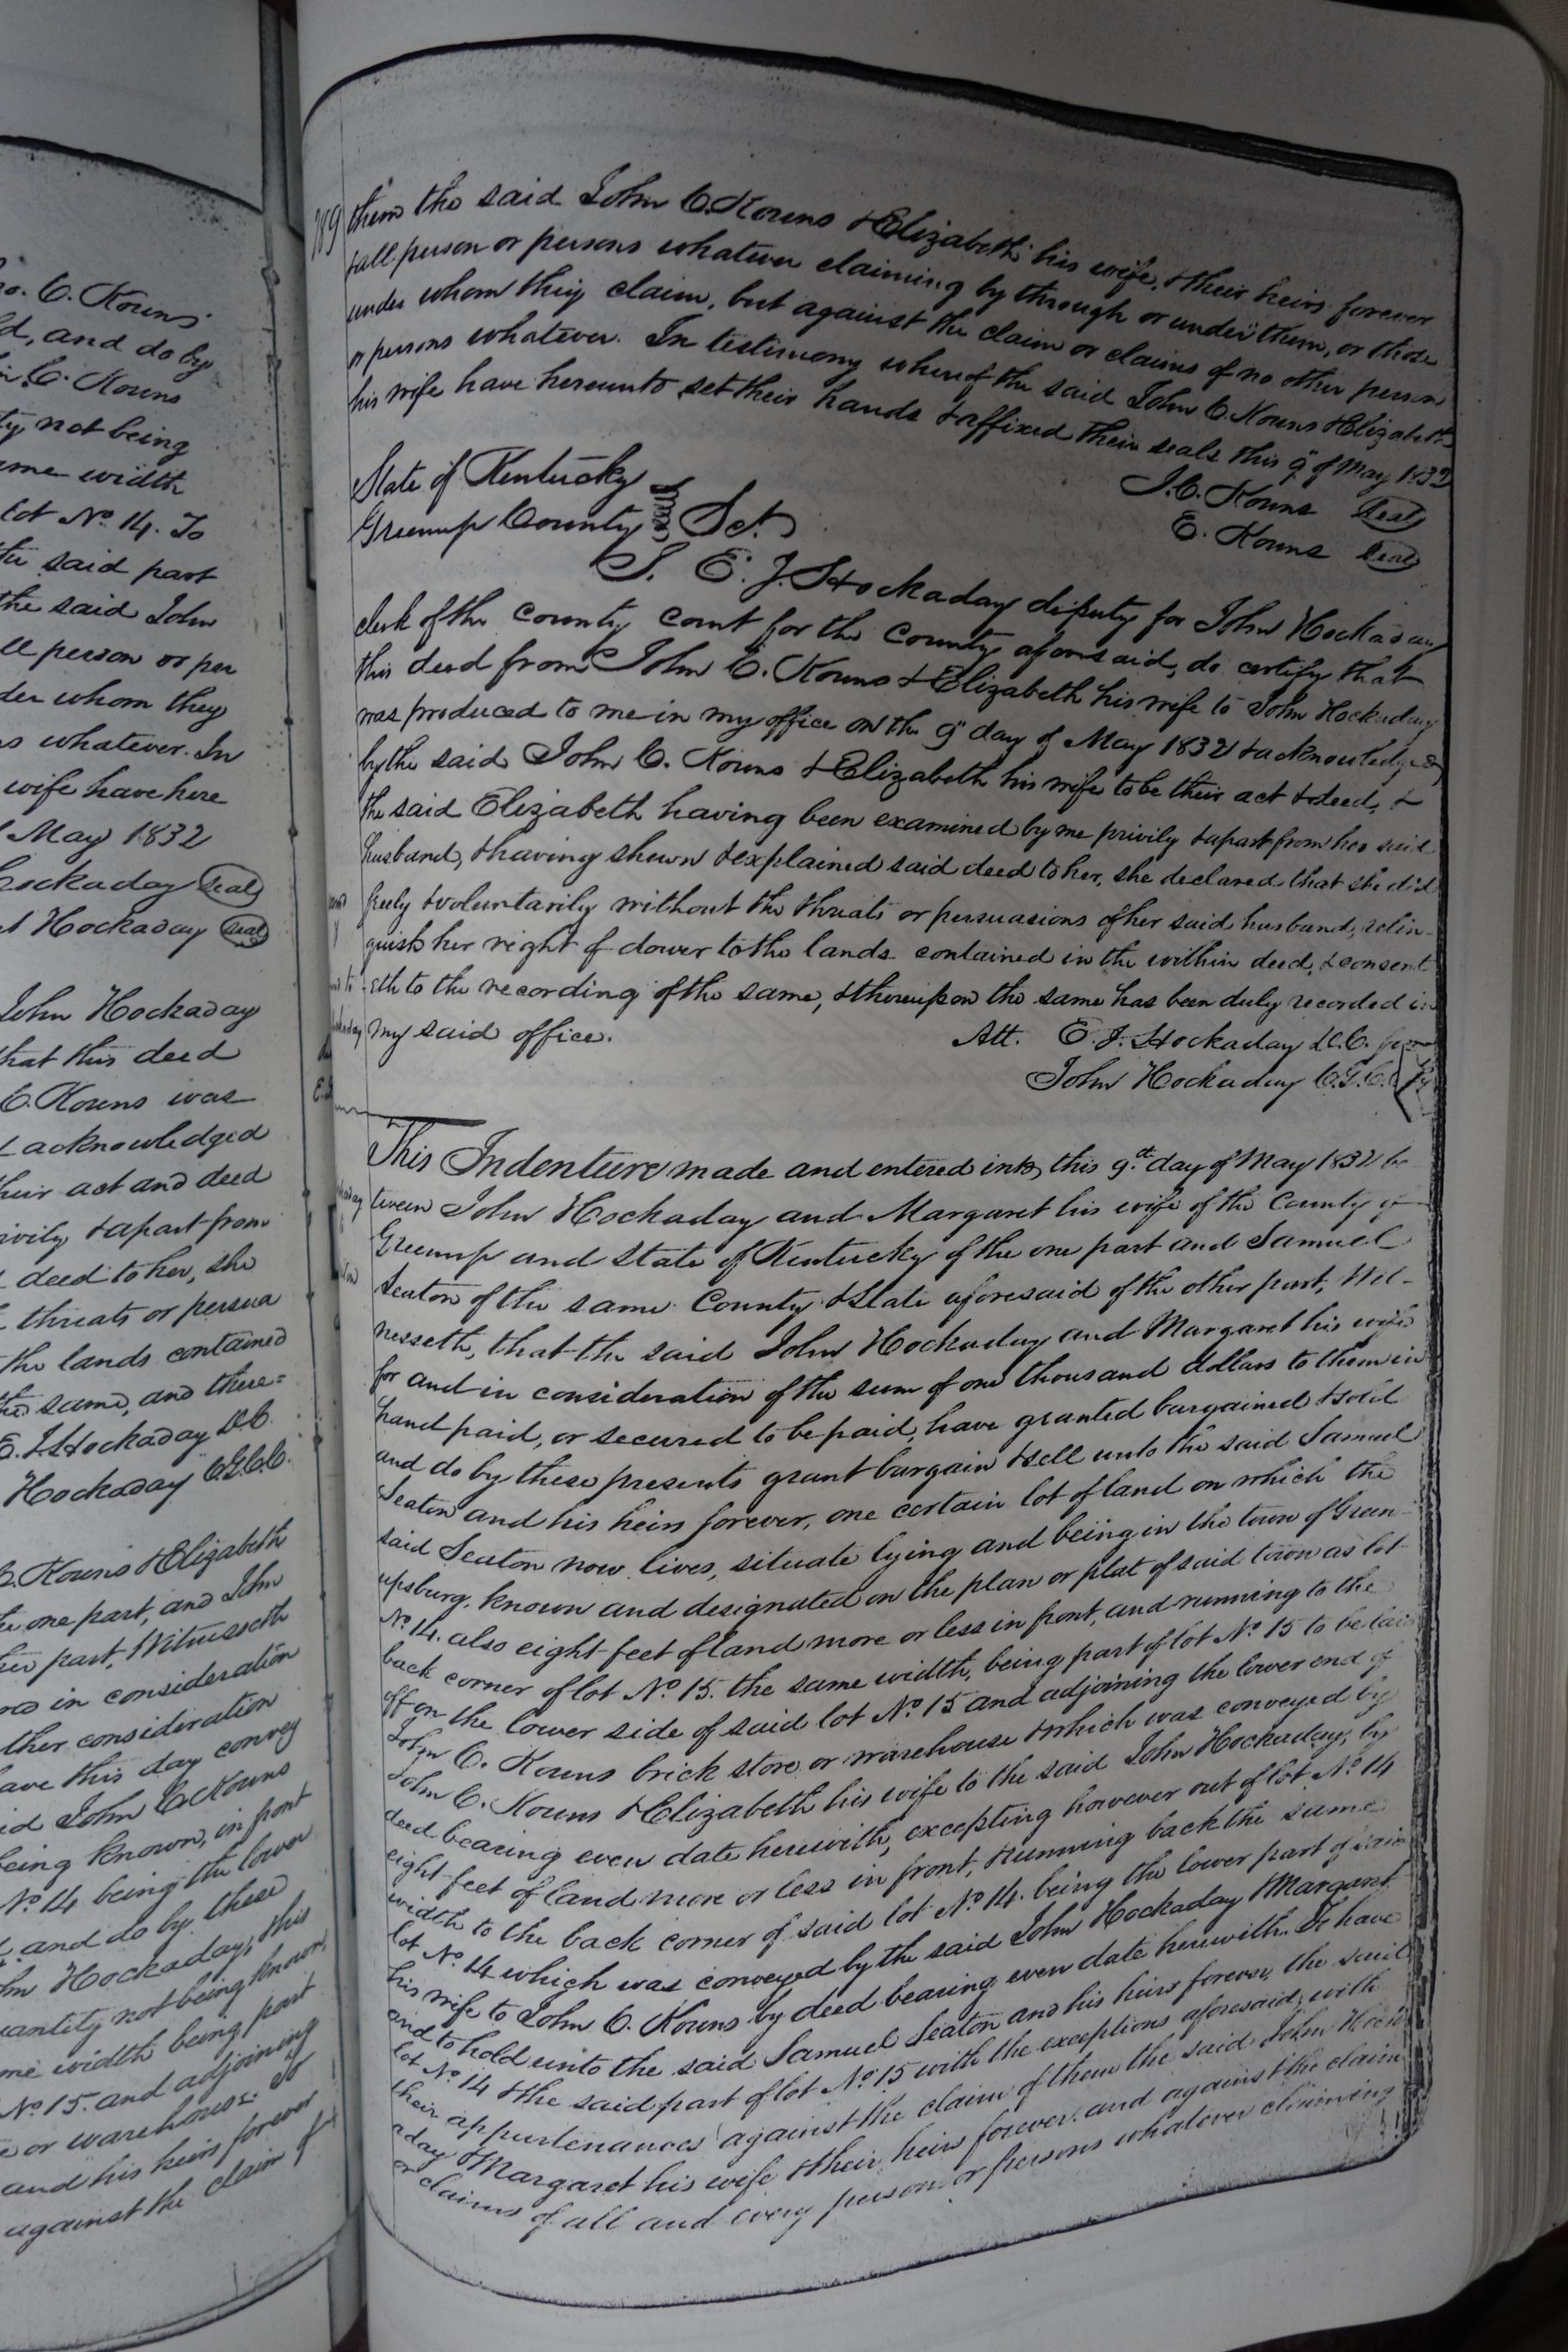 o. C. Kouns
d, and do by
n C. Kouns
ty not being
me width
lot No. 14. To
the said part
the said John
ll person or per
der whom they
s whatever. In
wife have here
May 1832
Hockaday Seal
t Hockaday Seal
John Hockaday
that this deed
C. Kouns was
& acknowledged
their act and deed
ivily & apart from
deed to her, she
threats or persua
the lands contained
the same, and there=
E. J. Hockaday D.C.
Hockaday C.G.C.C.
C. Kouns & Elizabeth
he one part, and John
her part, Witnesseth
and in consideration
ther consideration
have this day convey
id John C. Kouns
being known, in front
No. 14 being the lower
and do by these
hn Hockaday, this
uantity not being known,
me width being part
No. 15. and adjoining
e or warehouse. To
and his heirs forever
against the claim of
189
them the said John C. Kouns & Elizabeth his wife, & their heirs forever
& all person or persons whatever claiming by through or under them, or those
under whom they claim, but against the claim or claims of no other person
or persons whatever. In testimony whereof the said John C. Kouns & Elizabeth
his wife have hereunto set their hands & affixed their seals this 9" of May 1832
J. C. Kouns Seal
E. Kouns Seal
State of Kentucky
Greenup County Sct.
I. E. J. Hockaday deputy for John Hockaday
clerk of the county court for the county aforesaid, do certify that
this deed from John C. Kouns & Elizabeth his wife to John Hockaday
was produced to me in my office on the 9" day of May 1832 & acknowledged
by the said John C. Kouns & Elizabeth his wife to be their act & deed, &
the said Elizabeth having been examined by me privily & apart from her said
husband, & having shewn & explained said deed to her, she declared that she did
freely & voluntarily without the threats or persuasions of her said husband, relin-
quish her right of dower to the lands contained in the within deed, & consent
eth to the recording of the same, & thereupon the same has been duly recorded in
my said office.
Att. E. J. Hockaday D.C. for
John Hockaday C.G.C.C.
This Indenture made and entered into, this 9th day of May 1832 be
tween John Hockaday and Margaret his wife of the County of
Greenup and State of Kentucky of the one part and Samuel
Seaton of the same County & State aforesaid of the other part, Wit-
nesseth, that the said John Hockaday and Margaret his wife
for and in consideration of the sum of one thousand dollars to them in
hand paid, or secured to be paid, have granted bargained & sold
and do by these presents grant bargain & sell unto the said Samuel
Seaton and his heirs forever, one certain lot of land on which the
said Seaton now lives, situate lying and being in the town of Green-
upsburg, known and designated on the plan or plat of said town as lot
No. 14. also eight feet of land more or less in front, and running to the
back corner of lot No. 15. the same width, being part of lot No. 15 to be laid
off on the lower side of said lot No. 15 and adjoining the lower end of
John C. Kouns brick store or warehouse & which was conveyed by
John C. Kouns & Elizabeth his wife to the said John Hockaday, by
deed bearing even date herewith, excepting however out of lot No. 14
eight feet of land more or less in front, & running back the same
width to the back corner of said lot No. 14. being the lower part of said
lot No. 14 which was conveyed by the said John Hockaday & Margaret
his wife to John C. Kouns by deed bearing even date herewith. To have
and to hold unto the said Samuel Seaton and his heirs forever, the said
lot No. 14 & the said part of lot No. 15 with the exceptions aforesaid, with
their appurtenances against the claim of them the said John Hock
aday & Margaret his wife & their heirs forever. and against the claim
or claims of all and every person or persons whatever claiming